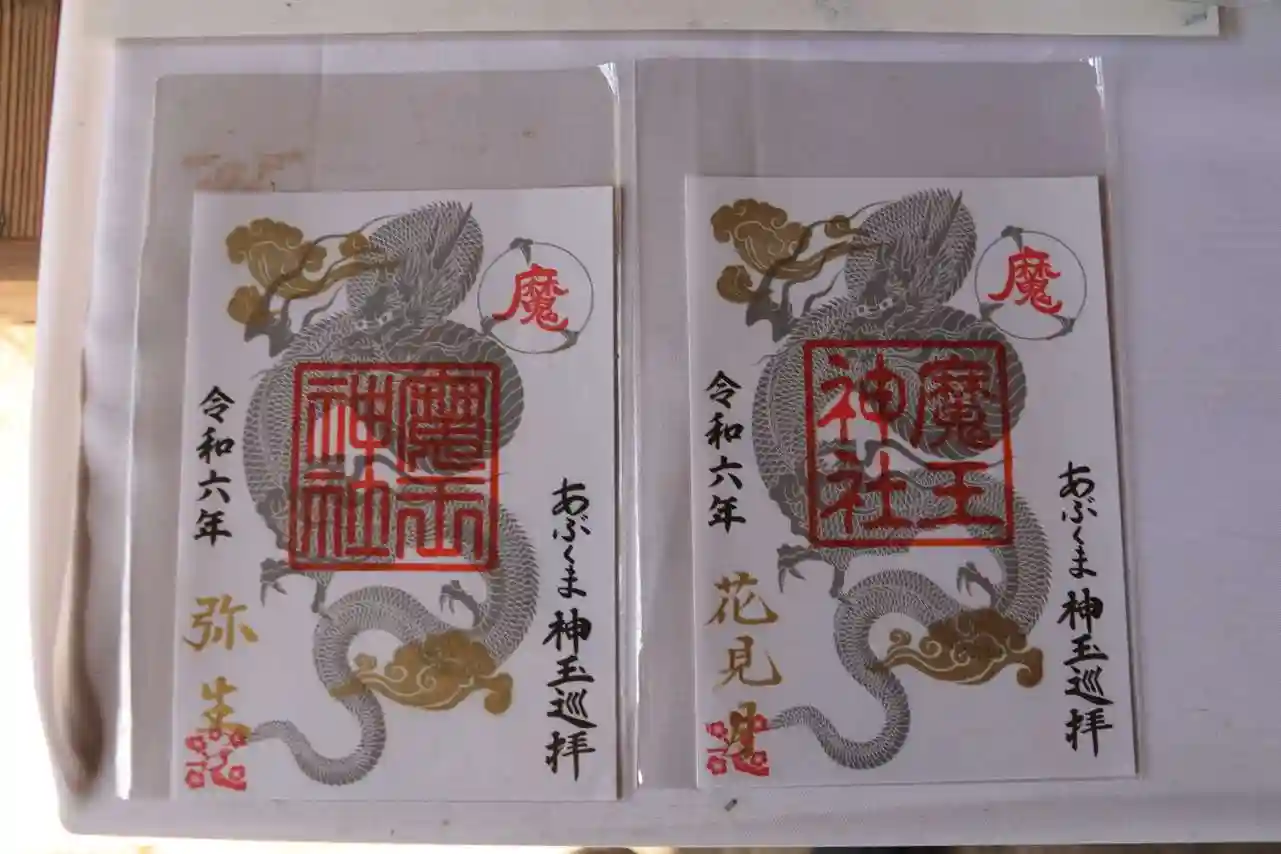 魔
魔王神社
あぶくま神玉巡拝
令和六年
弥生
魔
魔王神社
あぶくま神玉巡拝
令和六年
花見月